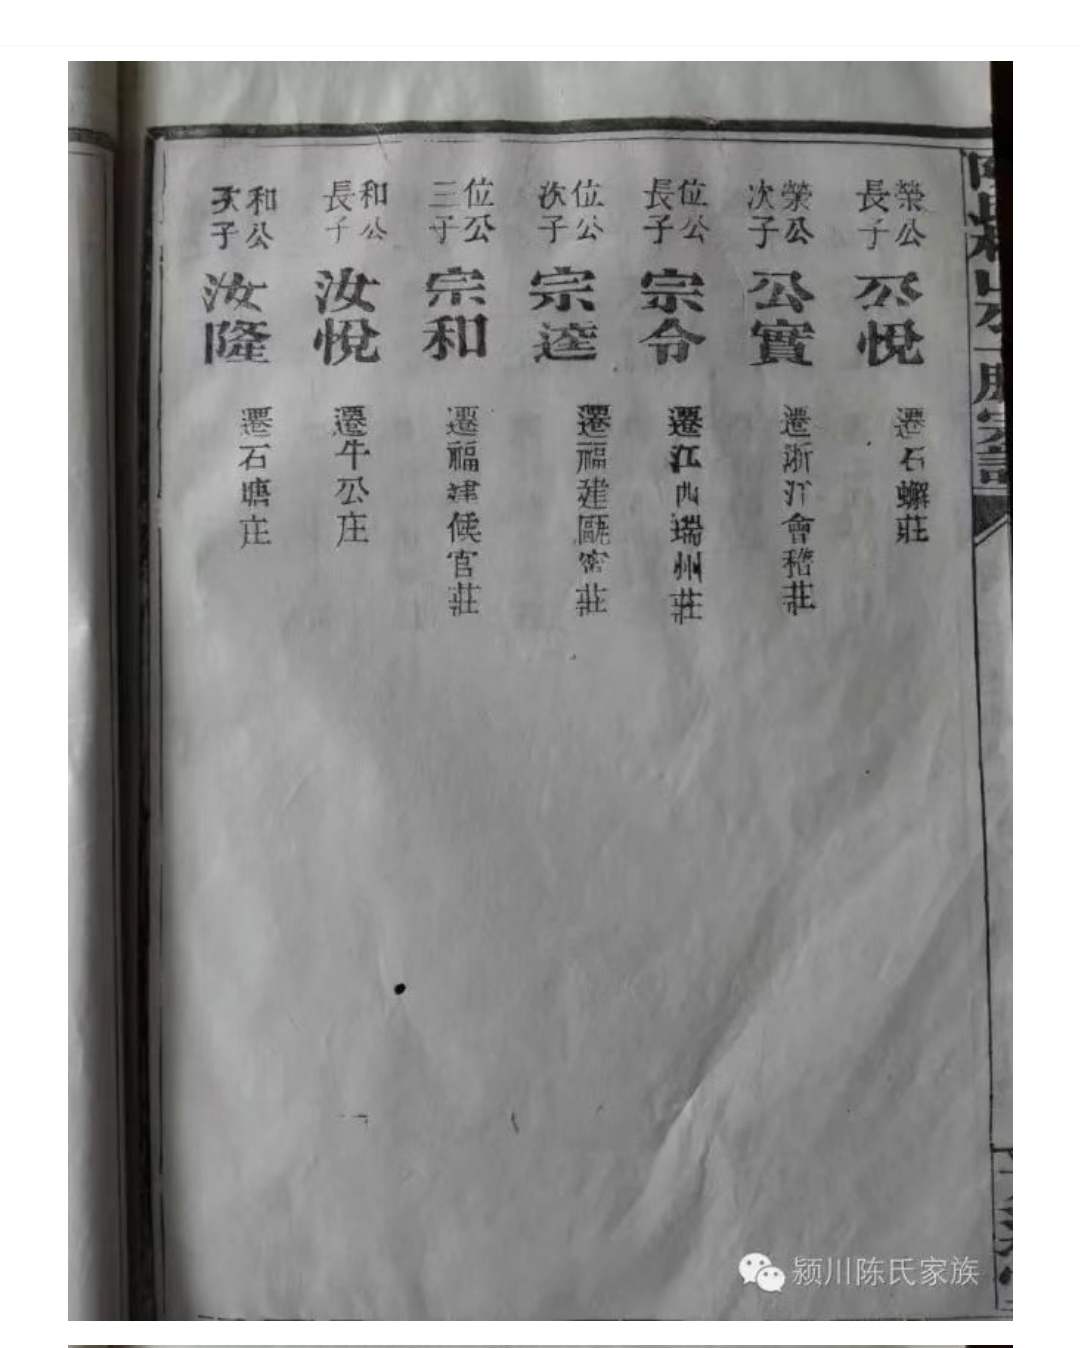 榮公長子 公悅 遷石蠏莊
榮公次子 公實 遷浙江會稽莊
位公長子 宗令 遷江西瑞州莊
位公次子 宗達 遷福建甌寧莊
位公三子 宗和 遷福建候官莊
和公長子 汝悅 遷牛公庄
和公次子 汝隆 遷石塘庄
颍川陈氏家族